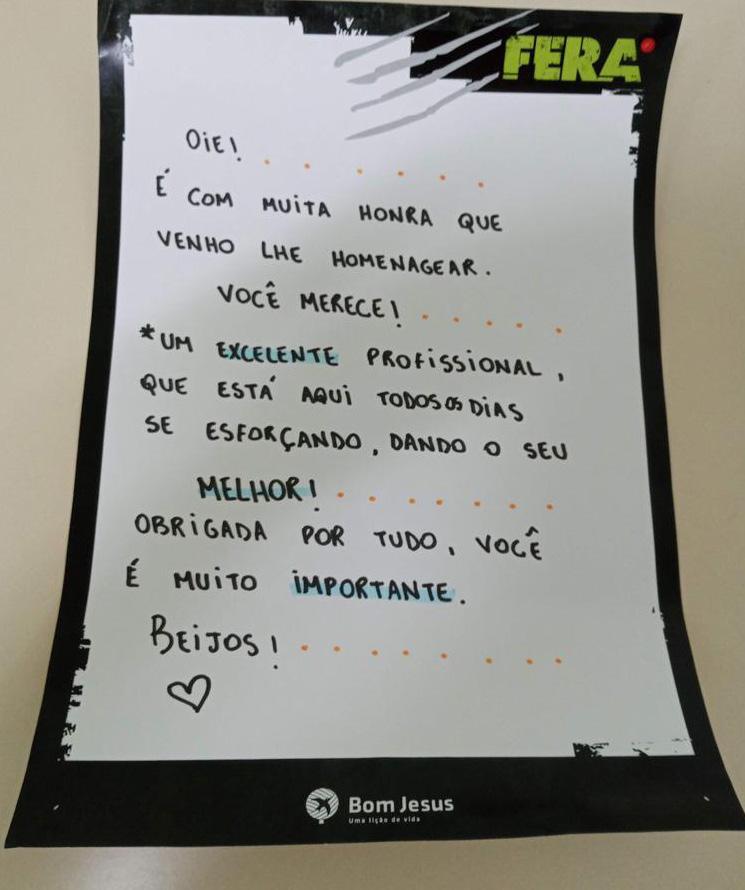 FERA
OIE!
É COM MUITA HONRA QUE
VENHO LHE HOMENAGEAR.
VOCÊ MERECE!
*UM EXCELENTE PROFISSIONAL,
QUE ESTÁ AQUI TODOS OS DIAS
SE ESFORÇANDO, DANDO O SEU
MELHOR!
OBRIGADA POR TUDO, VOCÊ
É MUITO IMPORTANTE.
BEIJOS!
Bom Jesus
Uma lição de vida